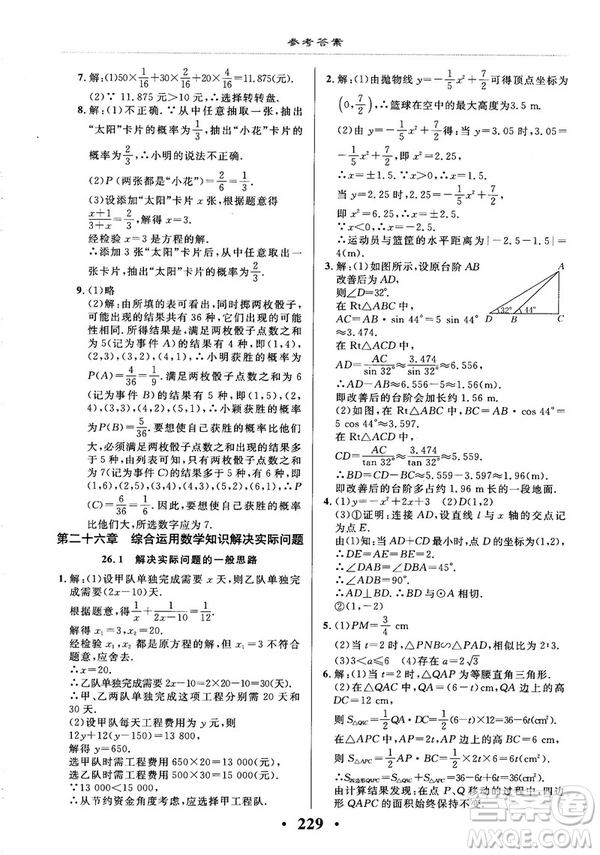 参考答案
7. 解：(1)50×1/16+30×2/16+20×4/16=11.875(元)
(2)∵ 11.875元＞10元，∴选择转转盘.
8. 解：(1)不正确. ∵从中任意抽取一张，抽出
“太阳”卡片的概率为2/3，抽出“小花”卡片的
概率为1/3. ∴小明的说法不正确.
(2)P(两张都是“小花”)=1/9.
(3)设添加“太阳”卡片 x 张，根据题意得
(x+1)/(3+x)=2/3，解得 x=3.
经检验 x=3 是方程的解.
∴添加 3 张“太阳”卡片后，从中任意抽取一
张卡片，抽出“太阳”卡片的概率为2/3.
9. (1)略
(2)解：由所填的表可以看出，同时掷两枚骰子
可能出现的结果共有 36 种，它们出现的可能
性相同. 所有结果中，满足两枚骰子点数之和
为 5(记为事件 A)的结果有 4 种，即(1,4)，
(2,3)，(3,2)，(4,1)，所以小明获胜的概率
为 P(A)=4/36=1/9. 满足两枚骰子点数之和为 6
(记为事件 B)的结果有 5 种，即(1,5)，(2,
4)，(3,3)，(4,2)，(5,1)，所以小颖获胜的概率
为 P(B)=5/36. 要想使自己获胜的概率比他们
大，必须满足两枚骰子点数之和的结果多于 5
种，由所列表格可知，只有两枚骰子点数之和
为 7(记为事件 C)的结果多于 5 种，即(1,6)，
(2,5)，(3,4)，(4,3)，(5,2)，(6,1). ∴P
(C)=6/36=1/6. 因此，要想使自己获胜的概率
比他们大，所选数字应为 7.
第二十六章 综合运用数学知识解决实际问题
26.1 解决实际问题的一般思路
1. 解：(1)设甲队单独完成需要 x 天，则乙队单独
完成需要(2x-10)天.
根据题意，得12/x+12/(2x-10)=1.
解得 x₁=3，x₂=20.
经检验 x₁，x₂ 都是原方程的解，但 x₁=3 不符合
题意，应舍去.
∴x=20.
∴乙队单独完成需要 2x-10=30(天).
∴甲、乙两队单独完成这项工程分别需要
20天、30天.
(2)设甲队每天工程费用为 y 元，则
12y+12(y-150)=13 800
解得 y=650.
选甲队时需工程费用 650×20=13 000(元)，
选乙队时需工程费用 500×30=15 000(元).
∵13 000＜15 000，
∴从节约资金角度考虑，应该选择甲工程队.
2. 解：(1)由抛物线 y=-1/5x²+7/2可得顶点坐标为
(0, 7/2)，∴篮球在空中的最大高度为3.5 m.
(2)由 y=-1/5x²+7/2得：当 y=3.05 时，3.05
=-1/5x²+7/2，
∴x=±1.5. ∵x＞0，∴x=1.5.
当 y=2.25 时，2.25=-1/5x²+7/2，
即 x²=25/4，∴x=±2.5.
∵x＜0，∴x=-2.5.
∴运动员与篮筐的水平距离为|-2.5-1.5|=
4(m).
3. 解：(1)如图所示，设原台阶 AB
改善后为 AD，
则∠D=32°.
在 Rt△ABC 中，
AC=AB·sin 44°=5 sin 44°
≈3.474.
在 Rt△ACD 中，
AD=AC/sin 32°≈3.474/sin 32°≈6.556，
∴AD-AB=6.556-5≈1.56.
即改善后的台阶会加长1.56 m.
(2)如图，在 Rt△ABC 中，BC=AB·cos 44°=
5 cos 44°≈3.597.
在 Rt△ACD 中，
CD=AC/tan 32°≈3.474/tan 32°≈5.559，
∴BD=CD-BC≈5.559-3.597≈1.96.
即改善后的台阶多占约1.96 m长的一段地面.
4. 解：(1)y=(x+2)² (2)D(1,2)
(3)①证明：连接AD，设直线 l 与 x 轴的交点记
为点 E.
∵∠DAE=∠BAE=45°.
∴∠DAB=90°.
∴△DAB≌△ABO.
∴AD∥BO，AB∥DO.
∴四边形ABOD是平行四边形.
②(1,-2)
5. (1)PM=3/4
(2)当 t=2 时，△PNB∽△PAD，相似比为2/3.
(3)3＜a≤6 (4)存在，t=2√3.
6. 解：(1)当 t=2时，△QAP为等腰直角三角形.
(2)在△QAC 中，QA=6-t，QA 边上的高为
DC=12，
则 S△QAC=1/2QA·DC=1/2(6-t)×12=36-6t.
在△APC 中，AP=2t，BC=6，
则 S△APC=1/2AP·BC=1/2·2t·6=6t.
∴S四边形QAPC=S△QAC+S△APC=(36-6t)+6t=36.
由计算结果发现：在P、Q移动的过程中，四边
形 QAPC 的面积始终保持不变.
A
D
B
C
32°
44°
229